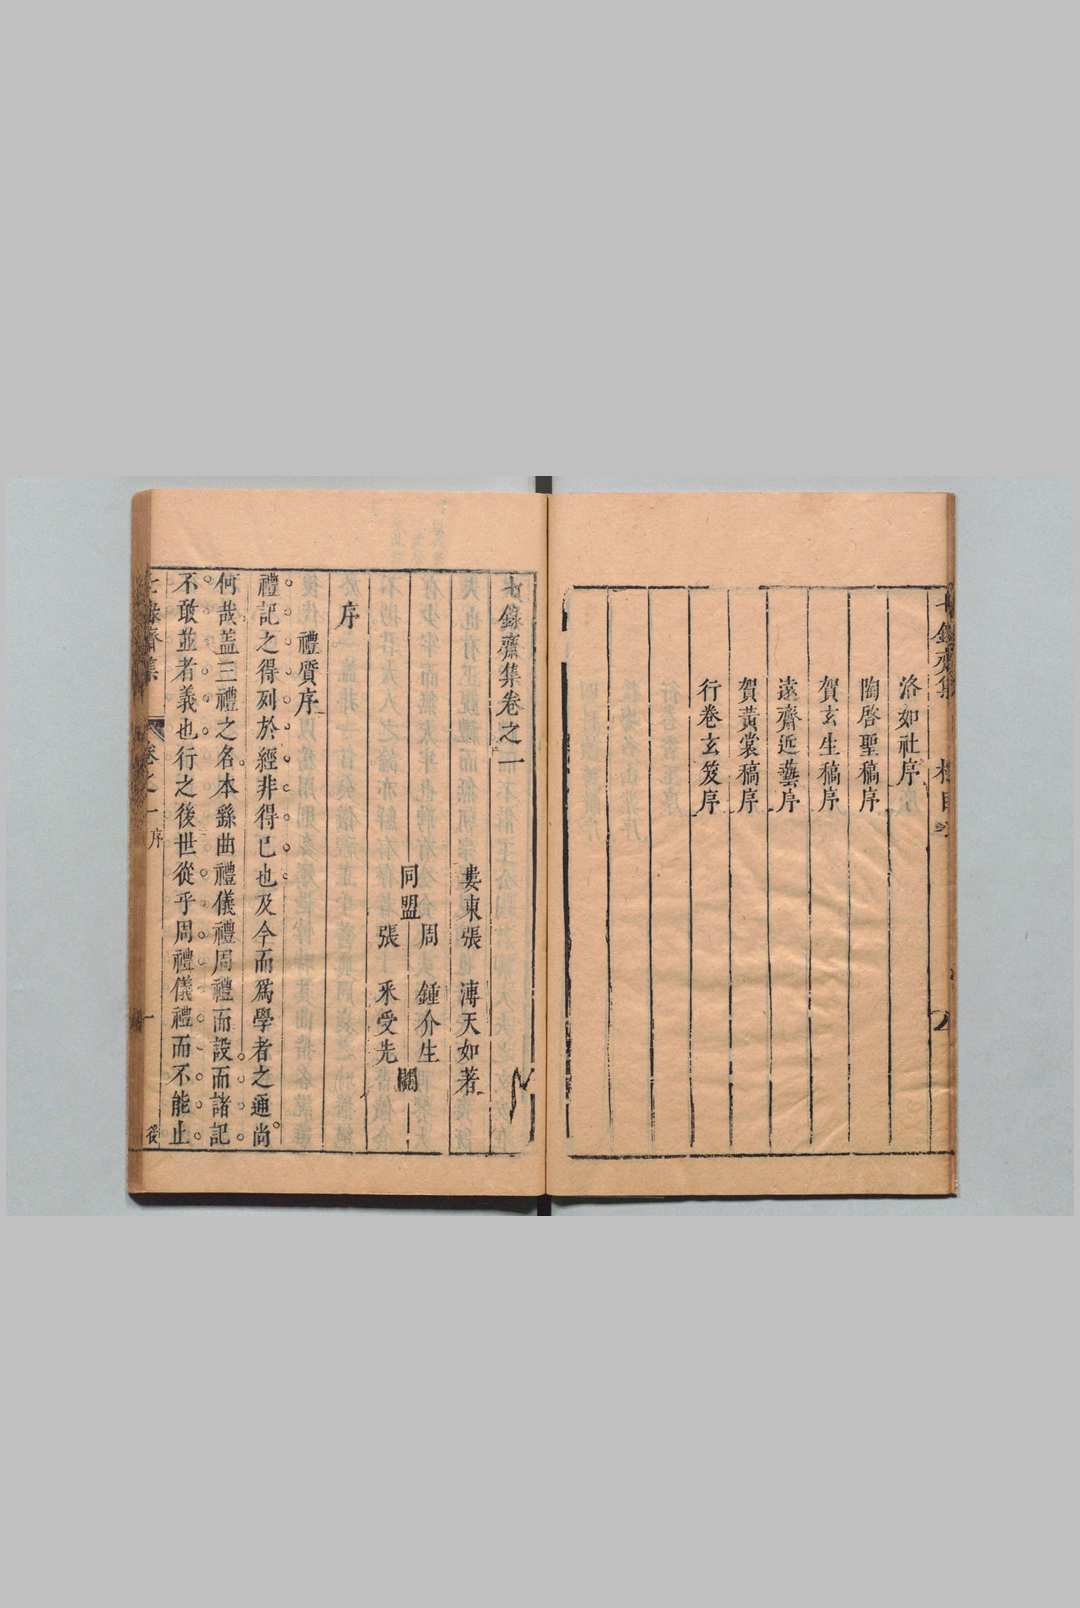 洛如社序
陶啓聖稿序
賀玄生稿序
遠齋近藝序
賀黃裳稿序
行卷玄笈序
七錄齋集卷之一
婁東張 溥天如著
周 鍾介生
同盟
張 采受先
閱
序
禮質序
禮記之得列於經非得已也及今而爲學者之通尚
何哉盖三禮之名本繇曲禮儀禮周禮而設而諸記
不敢並者義也行之後世從乎周禮儀禮而不能止
七錄齋集 卷之一 序 一